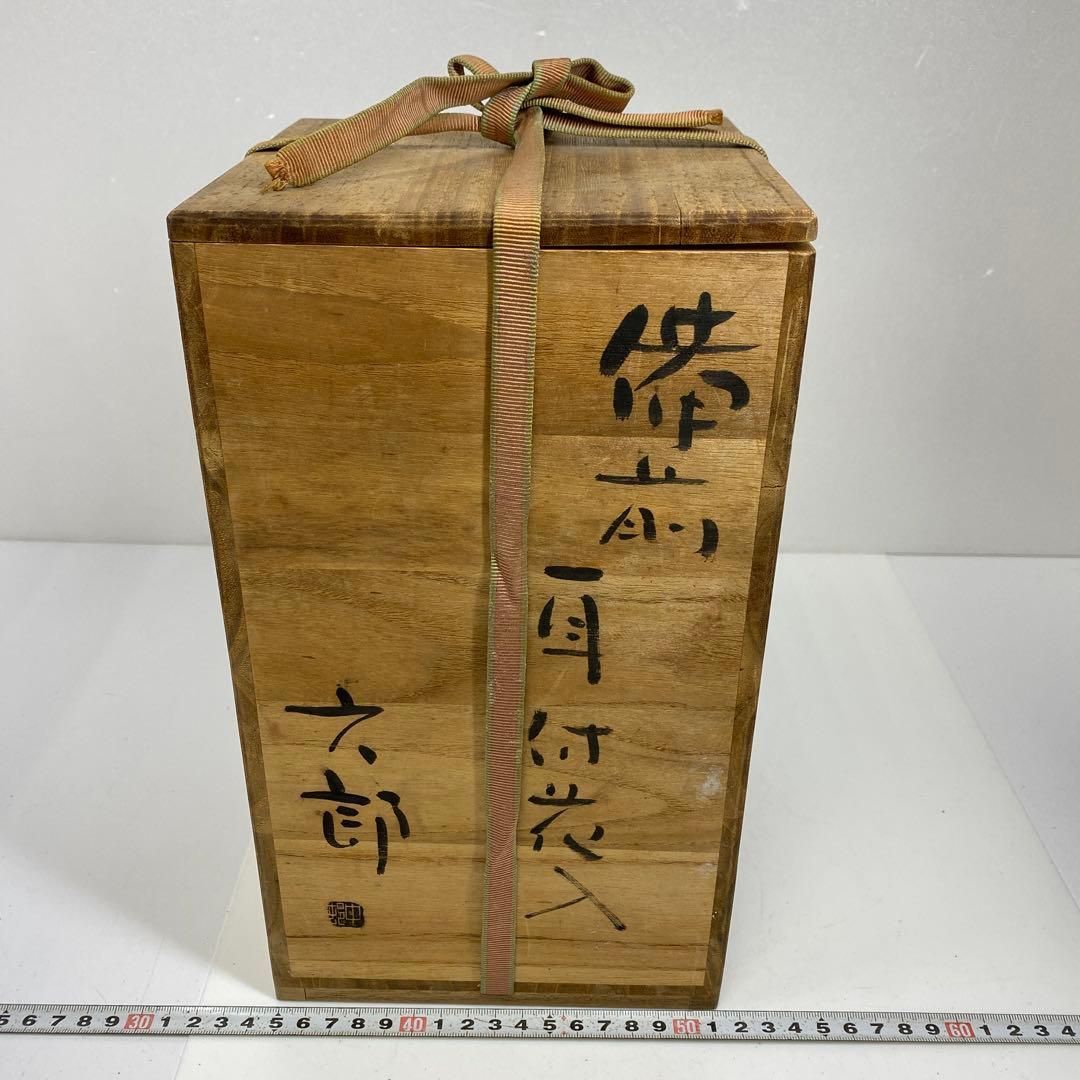 備前
耳付花入
六郎
5 6 7 8 9 30 1 2 3 4 5 6 7 8 9 40 1 2 3 4 5 6 7 8 9 50 1 2 3 4 5 6 7 8 9 60 1 2 3 4